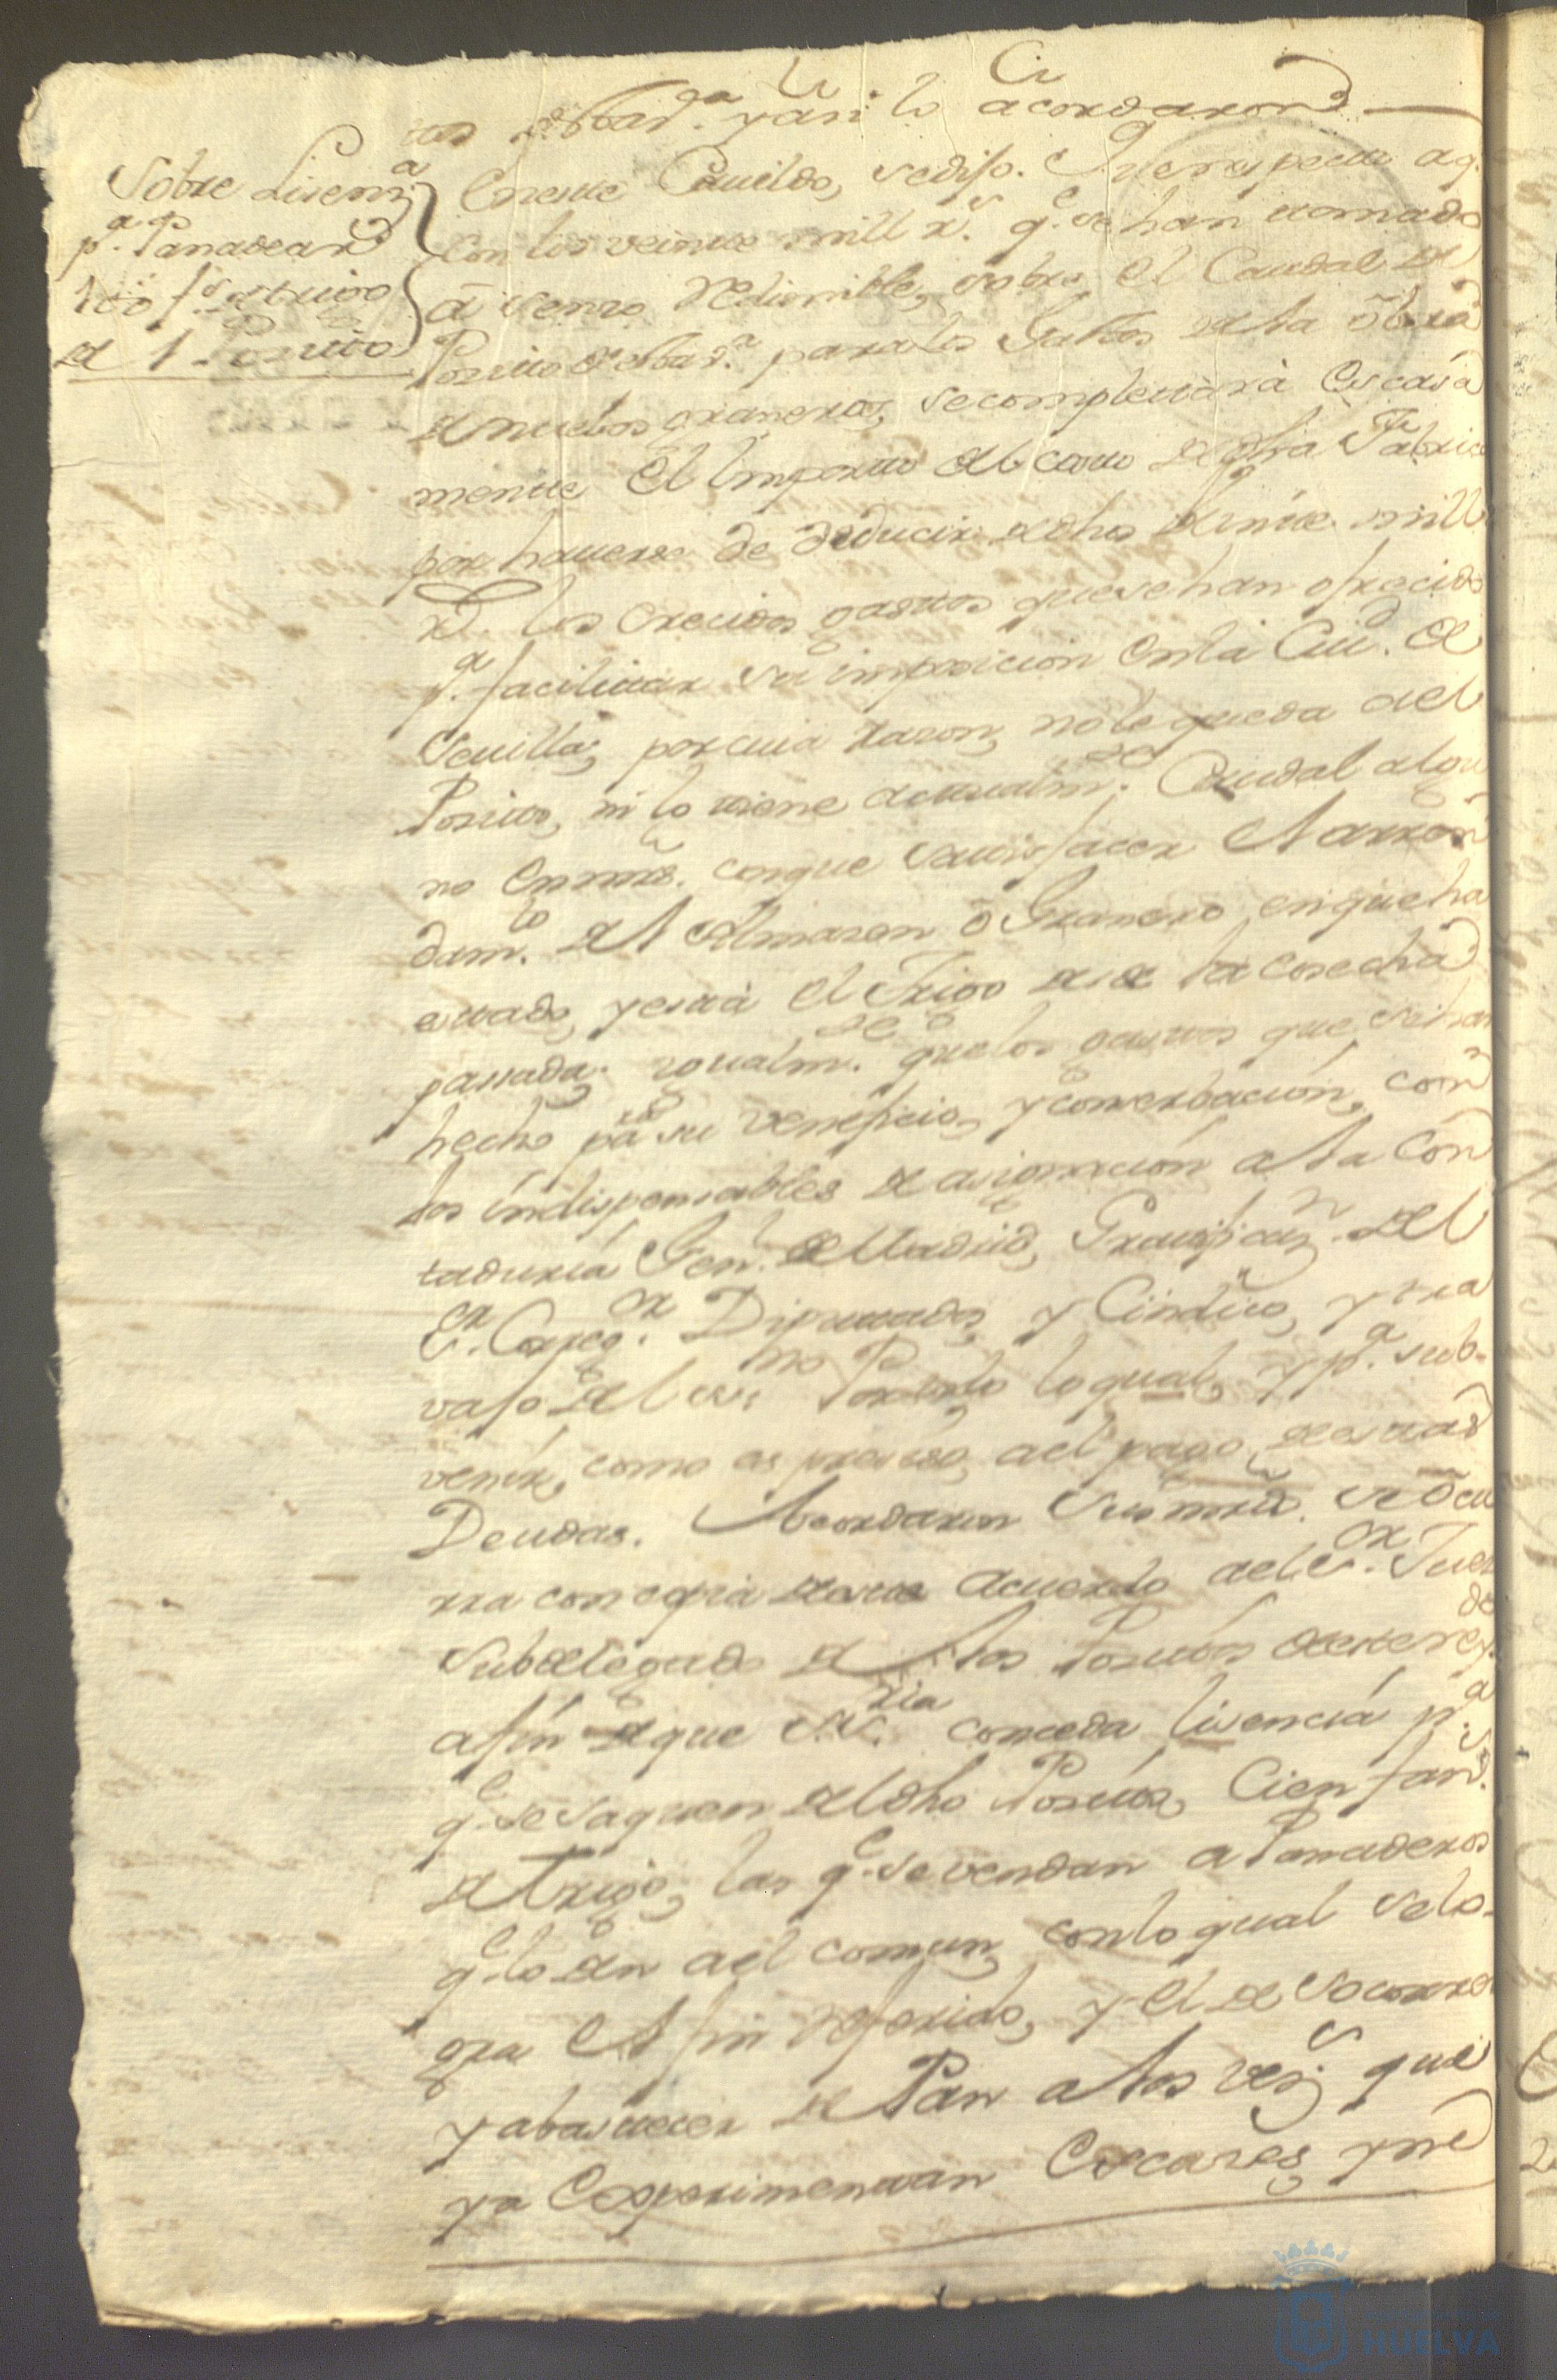 y asi lo acordaron
Sobre Lisenª
pª Panadear
100 fs. de trigo
del Posito
En este Cavildo, se dijo. Que respecto a q.
con los veinte mill rs. q.e se han tomado
á senso redimible, sobre el Caudal del
Posito para los Gastos de la óbra
de nuebos graneros, se completará escasa
mente el Importe del costo de dha Fabrica
por haverse de deducir de dhos veinte mill
rs. los crecidos gastos que se han ofrecido
pª facilitar su imposicion en la Ciud. de
Sevilla, por cuia razon, no le queda ael
Posito, ni lo tiene actualmte. Caudal algu
no en mrs. con que satisfacer el arren
damto. del Almazen ó Granero, en que ha
estado, y está el Trigo desde la cosecha
passada. Igualmte. que los gastos que se han
hecho para su veneficio, y conserbación, con
los indispensables de asignación a la Con
taduria Gen.l de Madrid, Gratificazn. del
Sr. Correg.or Diputados, y Cindico, y tra
vajo del esno. Por todo lo qual, y pª sub-
venir, como es preciso, ael pago de estas
Deudas. Acordaron Sus mrds. se ócu
rra con copia de este acuerdo ael Sr. Juez
Subdelegado de los Positos de este reydo
a fin de que Sa. Sria conceda lisencia pª
q.e se saquen del dho Posito, Cien fans.
de Trigo, las q.e se vendan a Panaderos
q.e lo den ael comun, con lo qual se lo-
gra el fin referido, y el de socorrer
y abastecer de Pan a los vez.s que
ya Experimentan Escases, y ne
HUELVA